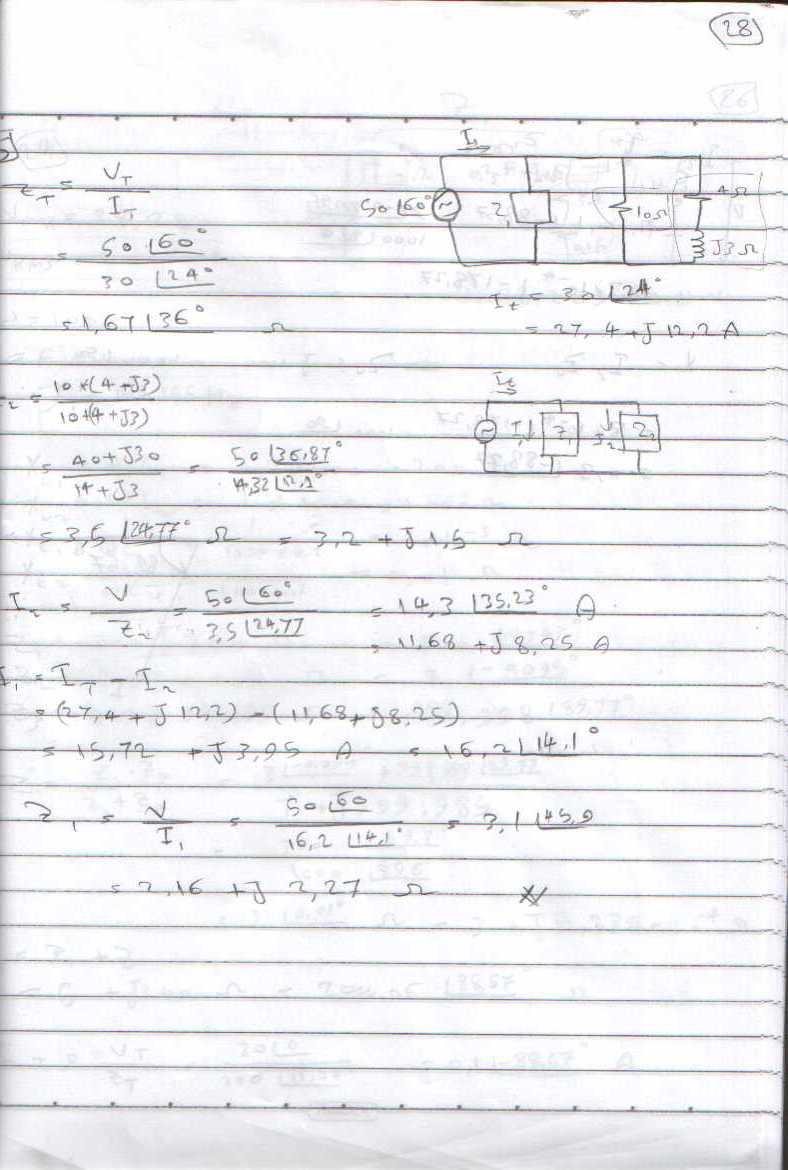 28
Z_T = V_T / I_T
= 50 ∠60° / 30 ∠24°
= 1,67 ∠36° Ω
I
50 ∠60°
Z₁
10Ω
4Ω
J3Ω
I_t = 30 ∠24°
= 27,4 + J 12,2 A
₂ = 10 × (4 + J3) / 10 + (4 + J3)
= 40 + J30 / 14 + J3 = 50 ∠36,87° / 14,32 ∠12,1°
= 3,5 ∠24,77° Ω = 3,2 + J 1,5 Ω
I_t
I₁
Z₁
I₂
Z₂
I₂ = V / Z₂ = 50 ∠60° / 3,5 ∠24,77 = 14,3 ∠35,23° A
= 11,68 + J 8,25 A
I₁ = I_T − I₂
= (27,4 + J 12,2) − (11,68 + J8,25)
= 15,72 + J 3,95 A = 16,2 ∠14,1°
Z₁ = V / I₁ = 50 ∠60 / 16,2 ∠14,1° = 3,1 ∠45,9
= 2,16 + J 2,27 Ω